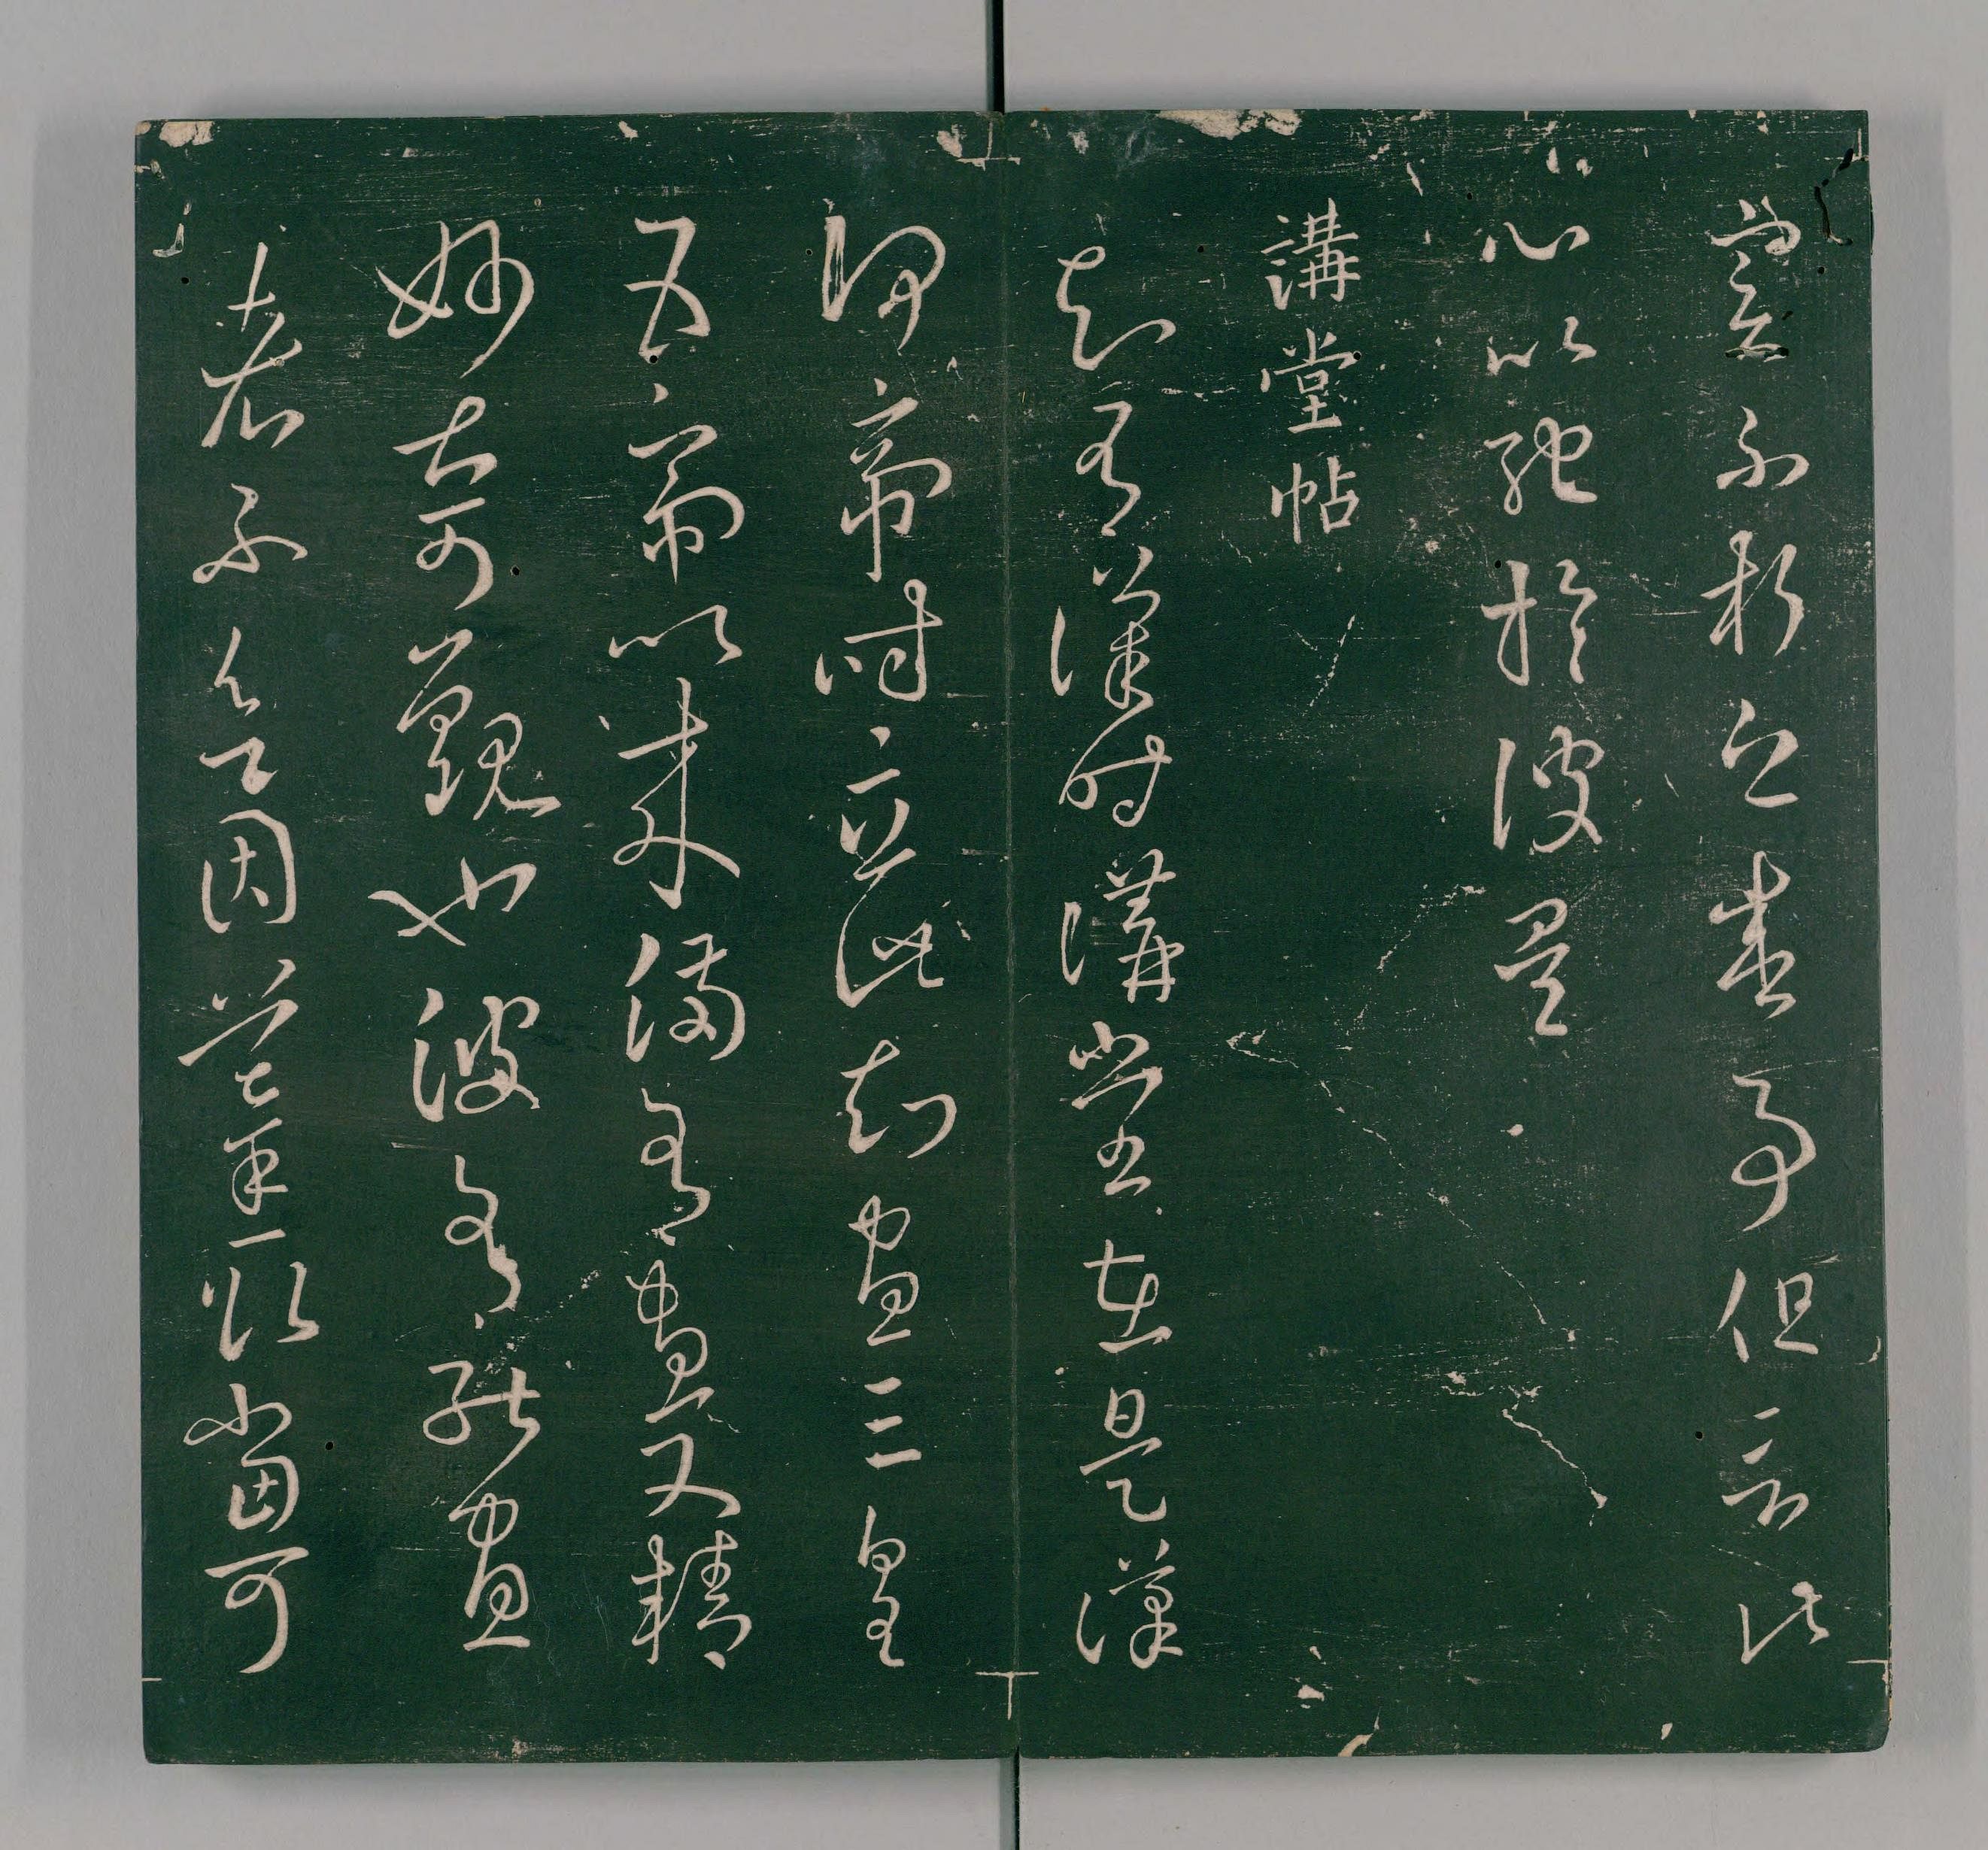 實不朽之盛事但言此
心以馳於彼矣
講堂帖
知有漢時講堂在是漢
何帝時立此知畫三皇
五帝以來備有畫又精
妙甚可觀也彼有能畫
者不欲因摹取當可